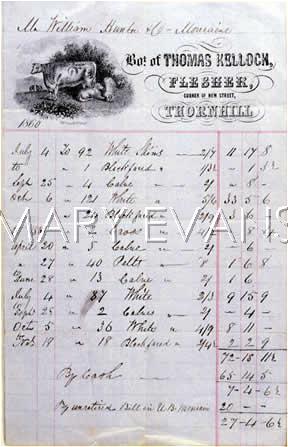 Mr William Hunter & Co. Moniaive
Bot. of THOMAS KELLOCK,
FLESHER,
CORNER OF NEW STREET,
THORNHILL
1860
July 4 To 92 White Skins 2/7 11 17 8
" " 1 Blackfaced " 1/3½ " 1 3½
Sept 25 " 4 Calve " 2/ " 8 "
Oct 6 " 121 White " 5/6 33 5 6
" 24 Blackfaced " 3 6
MARY EVANS
April 20 " 5 Calve " 2/ " 6
" 27 " 40 Pelts 8 1 6 8
June 28 " 13 Calve " 2/ 1 6
July 4 " 87 White 2/3 9 15 9
Sept 25 " 2 Calves 2/ " 4
Octo 5 " 36 White " 4/9 8 11 "
19 " 18 Blackfaced " 2/4½ 2 2 9
72 18 11½
By Cash 65 14 5
7 4 6½
Bill in U.B. 20
27 4 6½